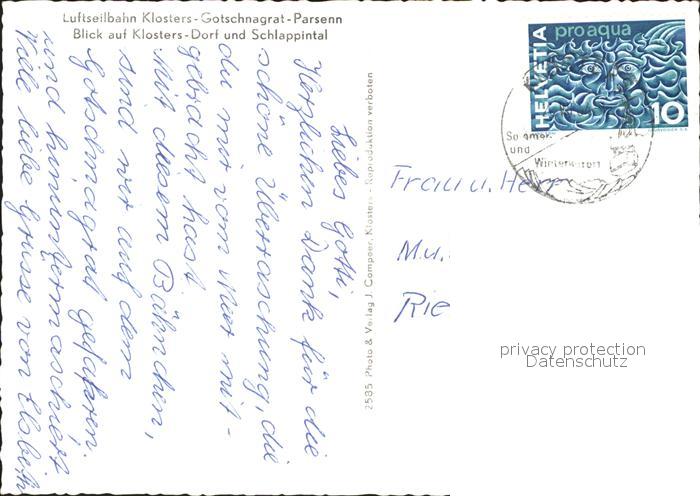 Luftseilbahn Klosters-Gotschnagrat-Parsenn
Blick auf Klosters-Dorf und Schlappintal
Liebes Gotti,
Herzlichen Dank für die
schöne Überraschung, die
du mir vom Meer mit-
gebracht hast
Mit diesem Bähnchen,
sind wir auf dem
Gotschnagrat gefahren.
und hinuntermaschiert
Viele liebe Grüsse von Elsbeth
2585 Photo & Verlag J. Compoer, Klosters - Reproduktion verboten
HELVETIA
pro aqua
10
und
Wintersport
Frau u. Herr
M.u.
Rie
privacy protection
Datenschutz